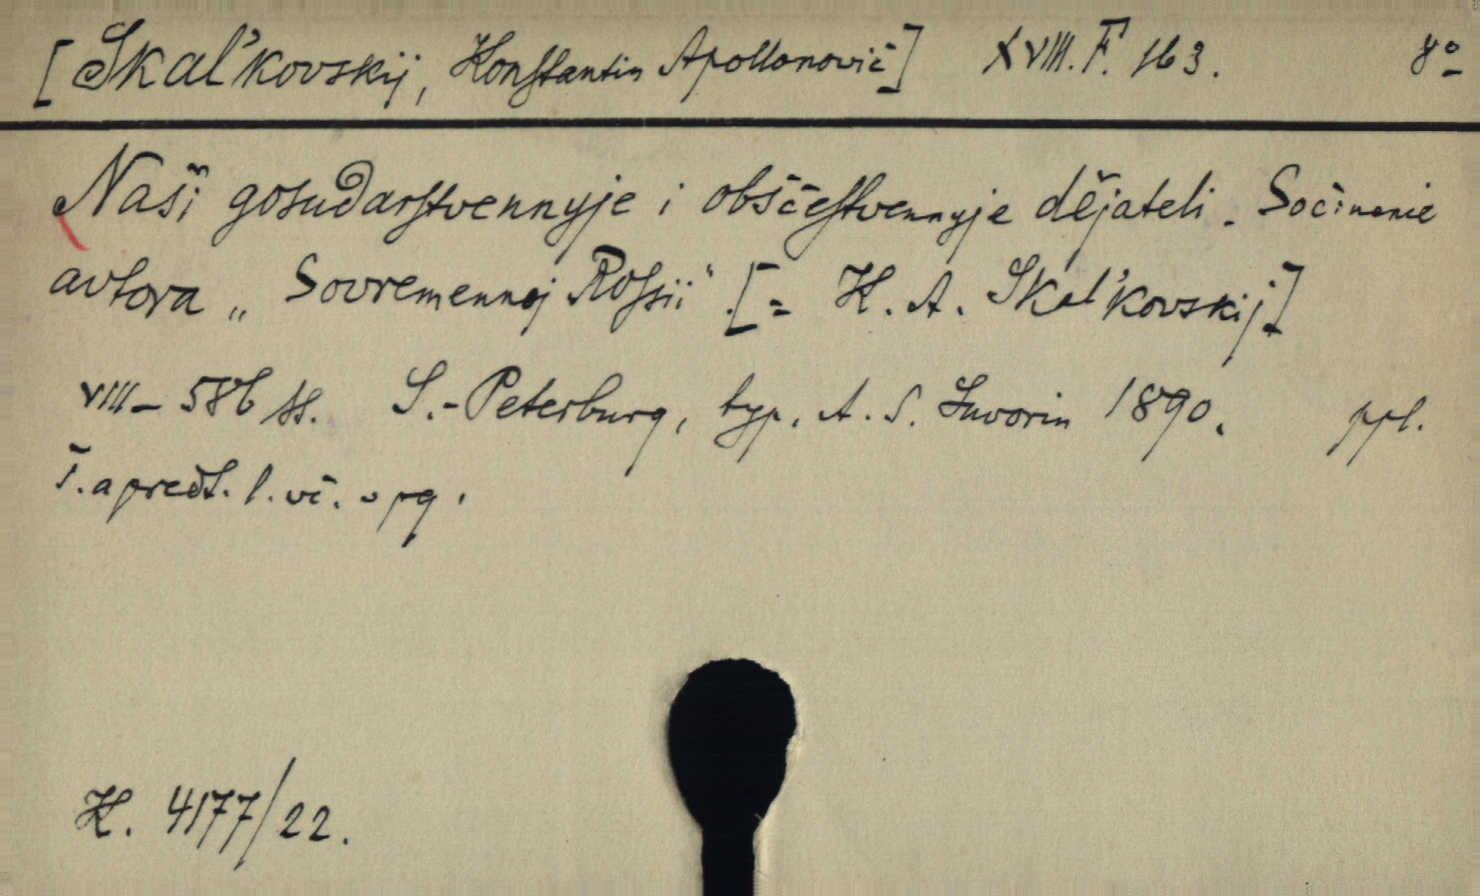 [Skal'kovskij, Konstantin Apollonovič] XVIII. F. 163. 8º
Naši gosudarstvennyje i obščestvennyje dějateli. Sočinenie
avtora „Sovremennoj Rossii". [= K. A. Skal'kovskij]
VIII – 586 ss. S.-Peterburg, typ. A. S. Suvorin 1890. ppl.
T. a předt. l. vč. v pg.
K. 4177/22.